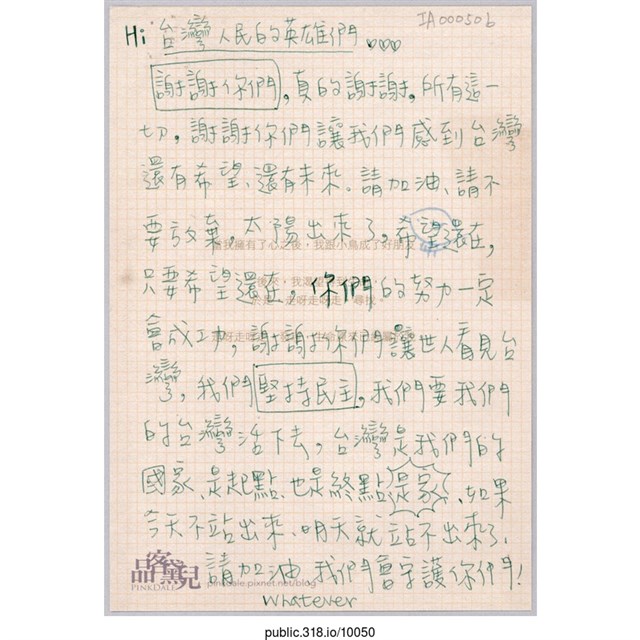 IA00050b
Hi 台灣人民的英雄們♡♡♡
謝謝你們，真的謝謝。所有這一
切，謝謝你們讓我們感到台灣
還有希望、還有未來。請加油、請不
要放棄。太陽出來了，希望還在，
當我擁有了心之後，我跟小鳥成了好朋友
只要希望還在。你們的努力一定
會成功，謝謝你們讓世人看見台
灣，我們堅持民主，我們要我們
的台灣活下去，台灣是我們的
國家、是起點、也是終點是家、如果
今天不站出來、明天就站不出來了，
請加油 我們會守護你們！
品客黛兒
PINKDALE
pinkdale.pixnet.net/blog
whatever
public.318.io/10050